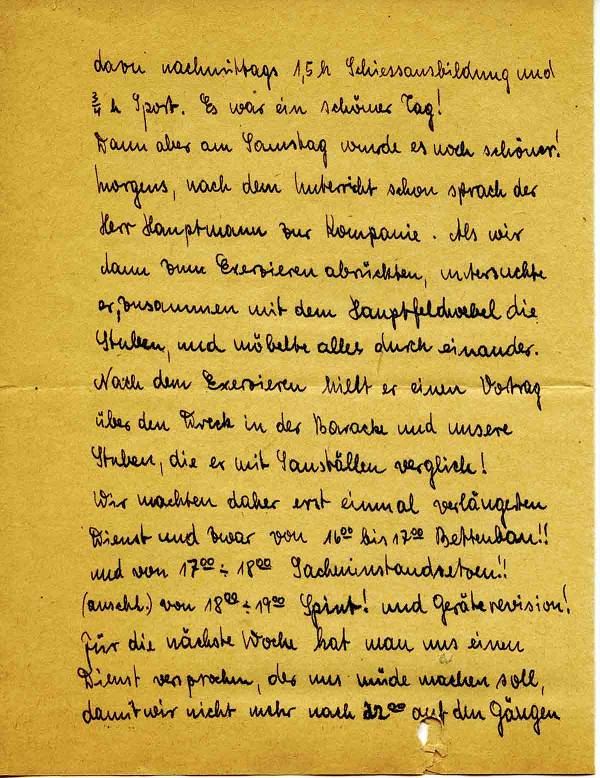 davon nachmittags 1,5 h Schiessausbildung und
¾ h Sport. Es war ein schöner Tag!
Dann aber am Samstag wurde es noch schöner!
Morgens, nach dem Unterricht schon sprach der
Herr Hauptmann zur Kompanie. Als wir
dann zum Exerzieren abrückten, untersuchte
er, zusammen mit dem Hauptfeldwebel die
Stuben, und möbelte alles durch einander.
Nach dem Exerzieren hielt er einen Vortrag
über den Dreck in der Baracke und unsere
Stuben, die er mit Sauställen verglich!
Wir machten daher erst einmal verlängerten
Dienst und zwar von 16⁰⁰ bis 17⁰⁰ Bettenbau!!
und von 17⁰⁰ ÷ 18⁰⁰ Sacheninstandsetzen!!
(anschl.) von 18⁰⁰ ÷ 19⁰⁰ Spint! und Geräterevision!
Für die nächste Woche hat man uns einen
Dienst versprochen, der uns müde machen soll,
damit wir nicht mehr nach 22⁰⁰ auf den Gängen